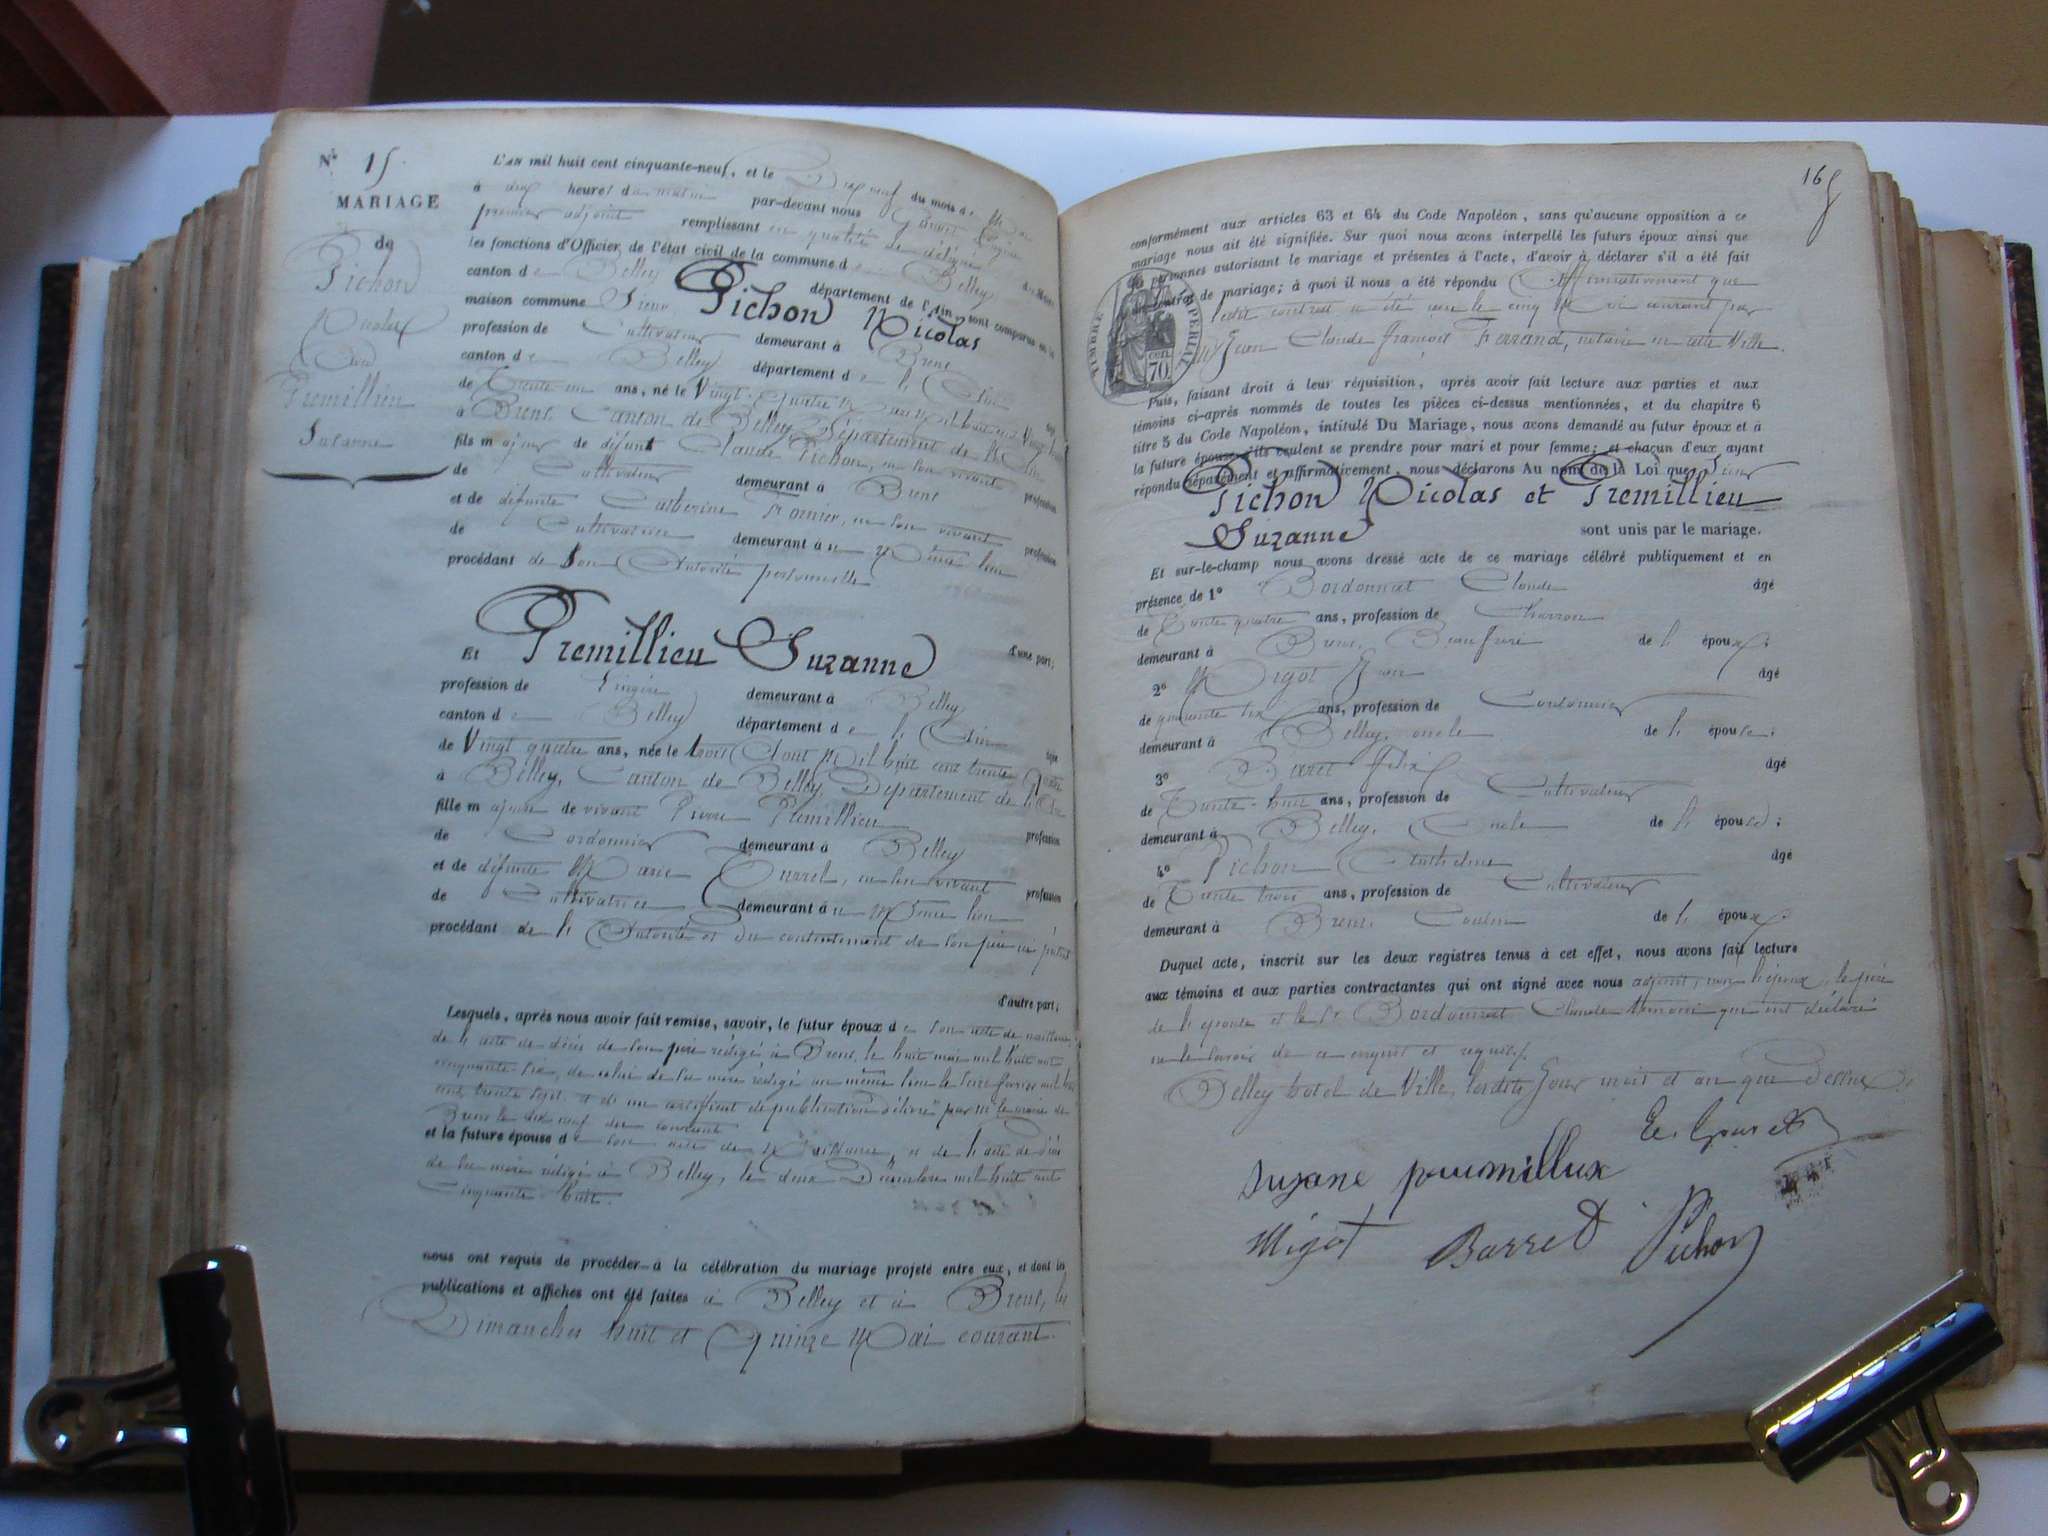 N° 15
MARIAGE
de
Pichon
Nicolas
Avec
Premillieu
Suzanne
L'AN mil huit cent cinquante-neuf, et le Dix neuf du mois de Mai
à dix heures du matin par-devant nous
premier adjoint remplissant en qualité de délégué
les fonctions d'Officier de l'état civil de la commune de Belley
canton de Belley département de l'Ain, sont comparus en la
maison commune Sieur Pichon Nicolas
profession de Cultivateur demeurant à Brens
canton de Belley département de l'Ain
de Trente un ans, né le Vingt-quatre
à Brens, Canton de Belley, Département de l'Ain
fils majeur de défunt Claude Pichon, en son vivant profession
de Cultivateur demeurant à Brens
et de défunte Catherine Fornier, en son vivant profession
de Cultivatrice demeurant à u Même lieu
procédant de Son Autorité personnelle
d'une part;
Et Premillieu Suzanne
profession de Lingère demeurant à Belley
canton de Belley département de l'Ain
de Vingt quatre ans, née le trois Aout Mil huit cent trente quatre
à Belley, Canton de Belley, Département de l'Ain
fille majeure de vivant Pierre Premillieu profession
de Cordonnier demeurant à Belley
et de défunte Marie Curret, en son vivant profession
de Cultivatrice demeurant à u Même lieu
procédant de l'Autorité et du consentement de son père ici présent
d'autre part;
Lesquels, après nous avoir fait remise, savoir, le futur époux de son acte de naissance,
de l'acte de décès de son père rédigé à Brens, le huit mai mil huit cent
cinquante six, de celui de sa mère rédigé au même lieu le seize février mil huit
cent trente sept, et d'un certificat de publication délivré par Mr le maire de
Brens le dix neuf du courant
et la future épouse de son acte de Naissance, et de l'acte de décès
de sa mère rédigé à Belley, le deux Décembre mil huit cent
Cinquante huit.
nous ont requis de procéder à la célébration du mariage projeté entre eux, et dont les
publications et affiches ont été faites à Belley et à Brens, les
Dimanches huit et Quinze Mai courant.
165
conformément aux articles 63 et 64 du Code Napoléon, sans qu'aucune opposition à ce
mariage nous ait été signifiée. Sur quoi nous avons interpellé les futurs époux ainsi que
les personnes autorisant le mariage et présentes à l'acte, d'avoir à déclarer s'il a été fait
un contrat de mariage; à quoi il nous a été répondu Affirmativement que
ledit contrat a été reçu le cinq Mai courant par
Mr Jean Claude François Ferrand, notaire en cette Ville.
TIMBRE IMPÉRIAL
70 cen.
Puis, faisant droit à leur réquisition, après avoir fait lecture aux parties et aux
témoins ci-après nommés de toutes les pièces ci-dessus mentionnées, et du chapitre 6
titre 5 du Code Napoléon, intitulé Du Mariage, nous avons demandé au futur époux et à
la future épouse s'ils veulent se prendre pour mari et pour femme; et chacun d'eux ayant
répondu séparément et affirmativement, nous déclarons Au nom de la Loi que Sieur
Pichon Nicolas et Premillieu
Suzanne sont unis par le mariage.
Et sur-le-champ nous avons dressé acte de ce mariage célébré publiquement et en
présence de 1° Bordonnat Claude âgé
de Trente quatre ans, profession de Charron
demeurant à Brens, Beau frère de l'époux;
2° Migot Jean âgé
de quarante six ans, profession de Cordonnier
demeurant à Belley, oncle de l'épouse;
3° Barret Félix âgé
de Trente-huit ans, profession de Cultivateur
demeurant à Belley, Oncle de l'épouse;
4° Pichon Anthelme âgé
de Trente trois ans, profession de Cultivateur
demeurant à Brens, Cousin de l'époux.
Duquel acte, inscrit sur les deux registres tenus à cet effet, nous avons fait lecture
aux témoins et aux parties contractantes qui ont signé avec nous adjoint, non l'époux, le père
de l'épouse et le Sr Bordonnat Claude témoin qui ont déclaré
ne le savoir de ce enquis et requis.
Belley hotel de Ville, lesdits Jour mois et an que dessus
Suzane proumillux
Migot Barret Pichon